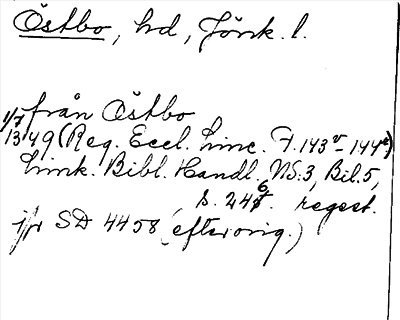 Östbo, hd, Jönk. l.
från Östbo
1/7 1349 (Reg. Eccl. Linc. F. 143v-144r)
Link. Bibl. Handl. NS. 3, Bil. 5,
s. 246. regest.
jfr SD 4458 (efter orig.)